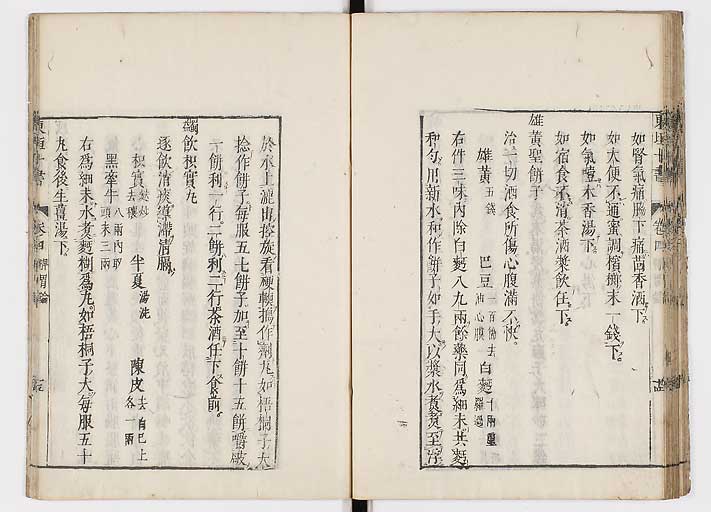 如腎氣痛腸下痛茴香酒下
如大便不通蜜調檳榔末一錢下
如氣噎木香湯下
如宿食不消茶酒漿飲任下
雄黃聖餅子
治一切酒食所傷心腹滿不快
雄黃五錢 巴豆一百箇去油心膜 白麪十兩重羅過
右件三味內除白麪八九兩餘藥同爲細末共麪
和勻用新水和作餅子如手大以漿水煮煮至浮
於水上漉出控旋看硬軟搗作劑丸如梧桐子大
捻作餅子每服五七餅子加至十餅十五餅嚼破
一餅利一行二餅利二行茶酒任下食前
蠲飲枳實丸
逐飲消痰導滯清膈
枳實麩炒去穰 半夏湯洗 陳皮去白已上各一兩
黑牽牛八兩內取頭末三兩
右爲細末水煮麪糊爲丸如梧桐子大每服五十
丸食後生薑湯下
東垣十書 卷四 脾胃論